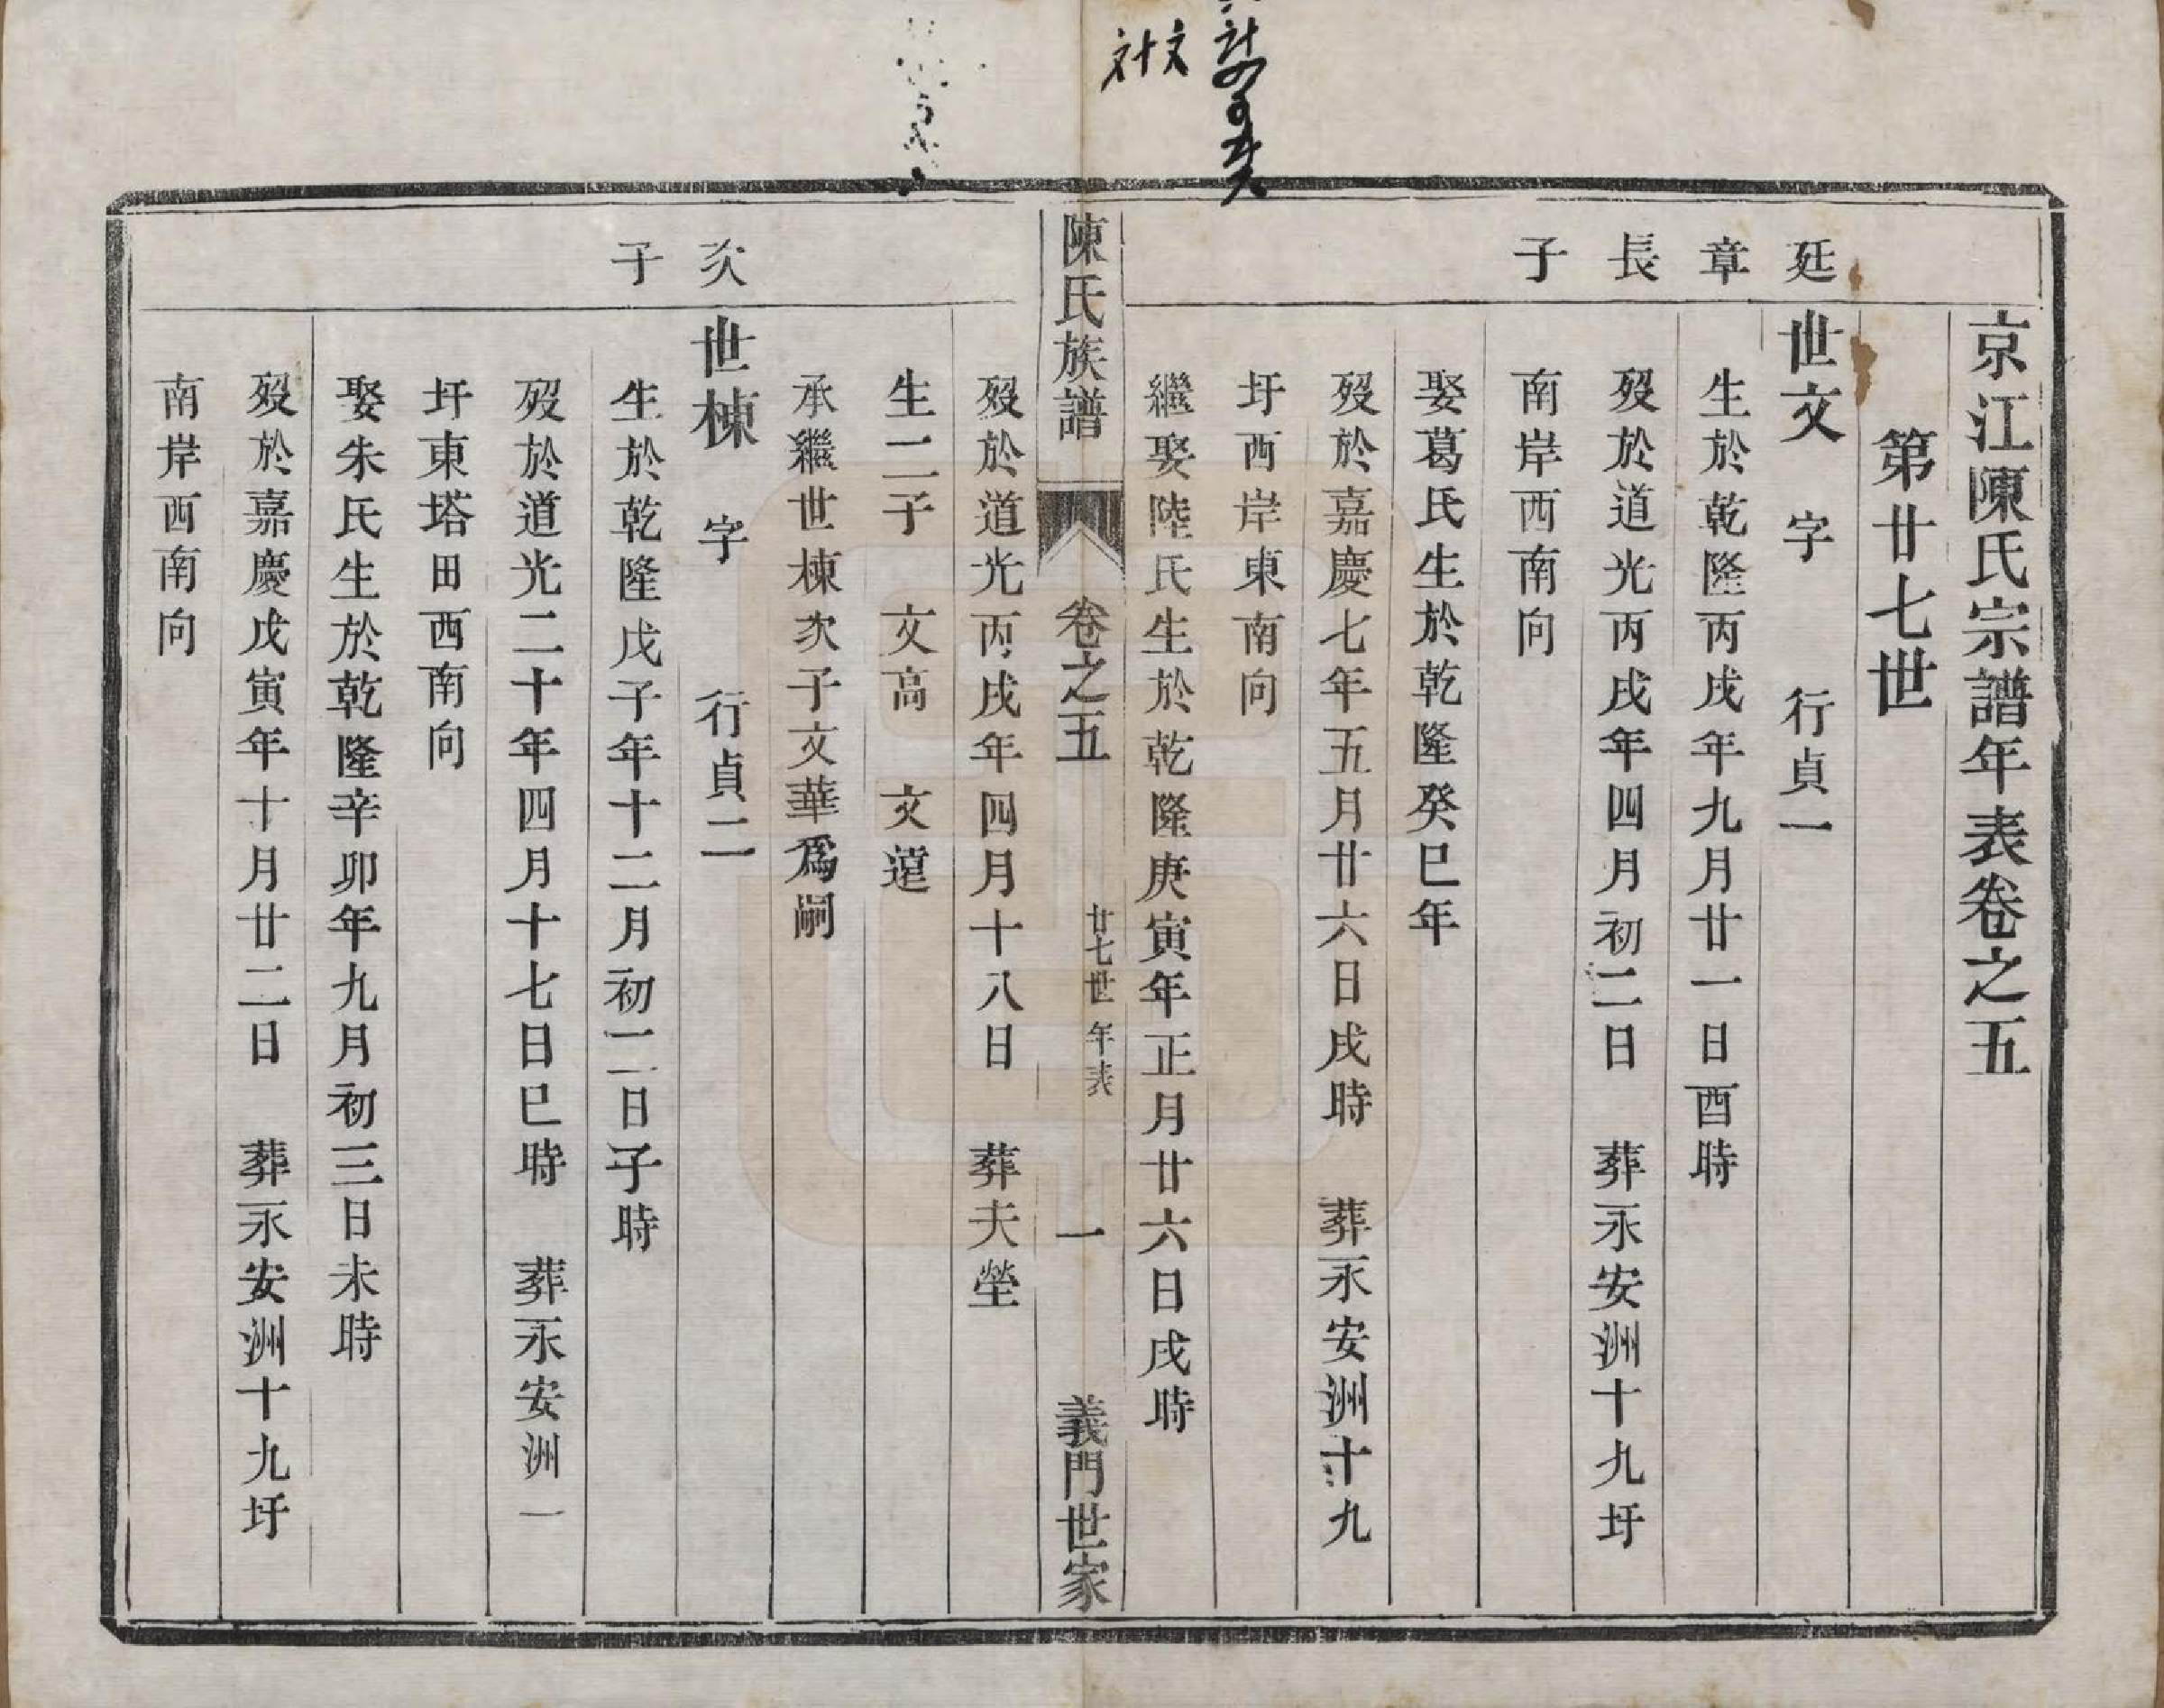 京江陳氏宗譜年表卷之五
第廿七世
廷章長子
世文　字　　行貞一
生於乾隆丙戌年九月廿一日酉時
歿於道光丙戌年四月初二日　葬永安洲十九圩
南岸西南向
娶葛氏生於乾隆癸巳年
歿於嘉慶七年五月廿六日戌時　葬永安洲十九
圩西岸東南向
繼娶陸氏生於乾隆庚寅年正月廿六日戌時
陳氏族譜　卷之五　廿七世年表　一　義門世家
歿於道光丙戌年四月十八日　葬夫塋
生二子　文高　文選
承繼世棟次子文華爲嗣
次子
世棟　字　　行貞二
生於乾隆戊子年十二月初二日子時
歿於道光二十年四月十七日巳時　葬永安洲一
圩東塔田西南向
娶朱氏生於乾隆辛卯年九月初三日未時
歿於嘉慶戊寅年十月廿二日　葬永安洲十九圩
南岸西南向